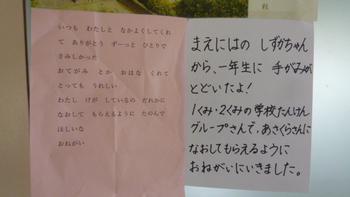 いつも　わたしと　なかよくしてくれ
て　ありがとう　ずーっと　ひとりで
さみしかった
おてがみ　とか　おはな　くれて
とっても　うれしい
わたし　けが　しているの　だれかに
なおして　もらえるように　たのんで
ほしいな
おねがい
まえにはの　しずかちゃん
から、一年生に　手がみが
とどいたよ！
1くみ・2くみの学校たんけん
グループさんで、あさくらさんに
なおしてもらえるように
おねがいにいきました。